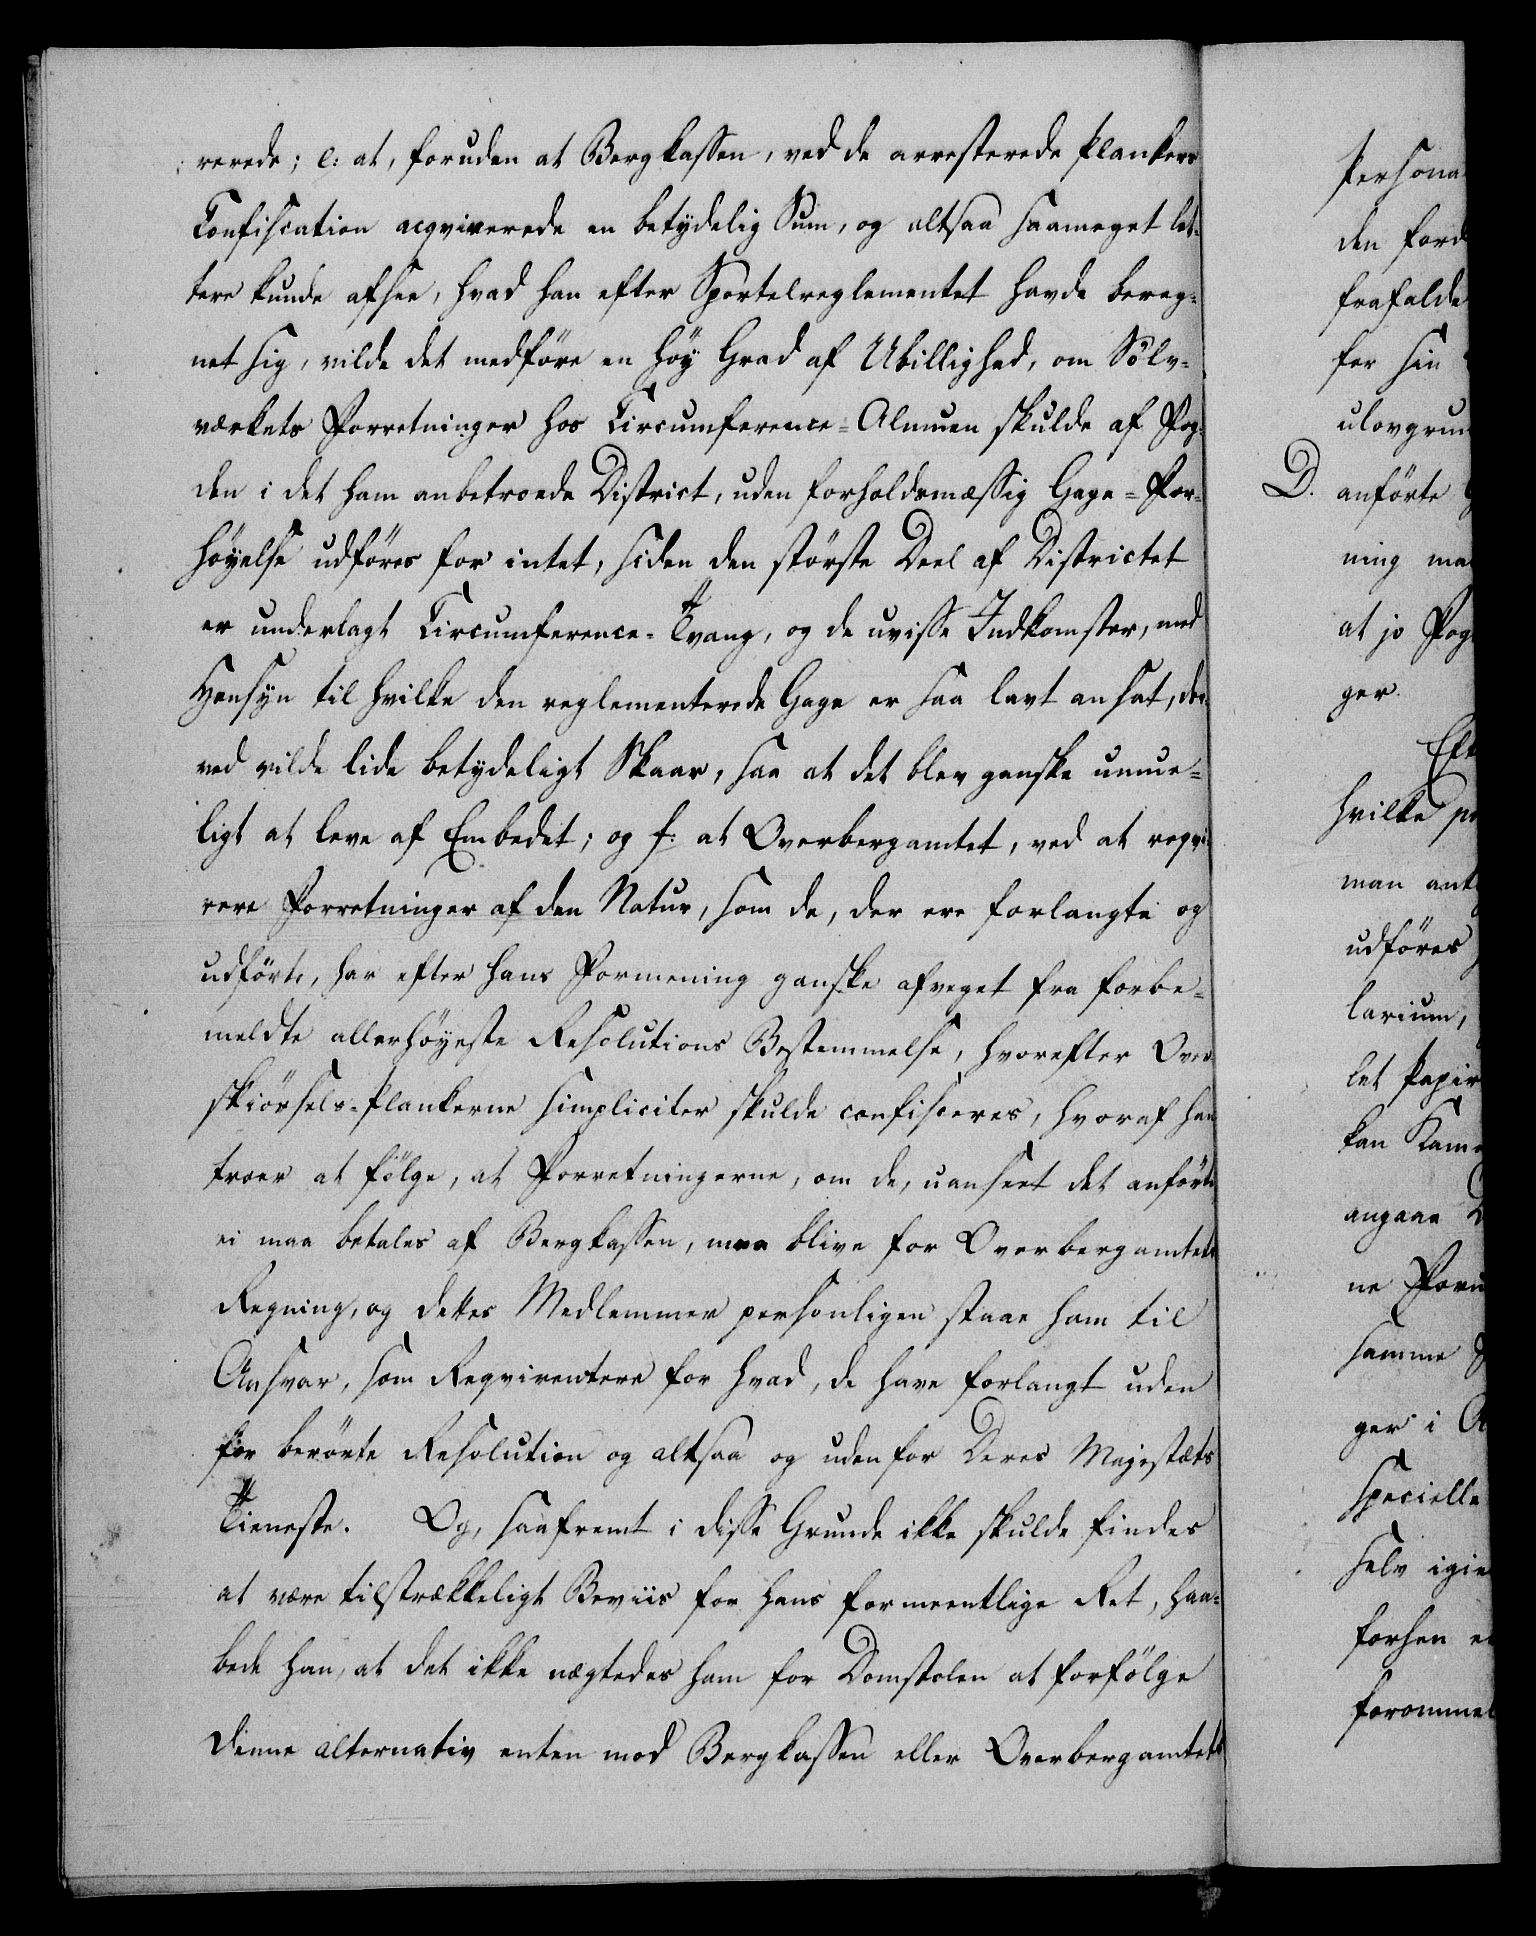 rerede; e: at, foruden at Bergkassen, ved de arresterede Plankers
Confiscation acqvirerede en betydelig Sum, og altsaa saameget let-
tere kunde afsee, hvad han efter Sportelreglementet havde bereg-
net sig, vilde det medföre en höy Grad af Ubillighed, om Sölv-
værkets Forretninger hos Circumference-Almuen skulde af Fog-
den i det ham anbetroede District, uden forholdsmæssig Gage-For-
höyelse udföres for intet, siden den störste Deel af Districtet
er underlagt Circumference-Tvang, og de uvisse Indkomster, med
Hensyn til hvilke den reglementerede Gage er saa lavt ansat, der-
ved vilde lide betydeligt Skaar, saa at det blev ganske umue-
ligt at leve af Embedet; og f: at Overbergamtet, ved at reqvi-
rere Forretninger af den Natur, som de, der ere forlangte og
udförte, har efter hans Formening ganske afveget fra forbe-
meldte allerhöyeste Resolutions Bestemmelse, hvorefter Over-
skiörsels-Plankerne simpliciter skulde confisceres, hvoraf han
troer at fölge, at Forretningerne, om de, uanseet det anförte
ei maa betales af Bergkassen, maa blive for Overbergamtets
Regning, og dettes Medlemmer personligen staae ham til
Ansvar, som Reqvirentere for hvad, de have forlangt uden
for berörte Resolution og altsaa og udenfor Deres Majestæts
Tieneste. Og, saafremt i disse Grunde ikke skulde findes
at være tilstrækkeligt Beviis for hans formeentlige Ret, haa-
bede han, at det ikke nægtedes ham for Domstolen at forfölge
denne alternativ enten mod Bergkassen eller Overbergamtets
Persona
den ford
frafalde
for sin
ulovgrun
D. anförte
ning ma
at jo Fog
ger.
Eft
hvilke pr
man ant
udföres
larium,
let Papir
kan Kam
angaae D
ne Foru
samme
ger i A
specielle
selv igie
forhen e
forommel